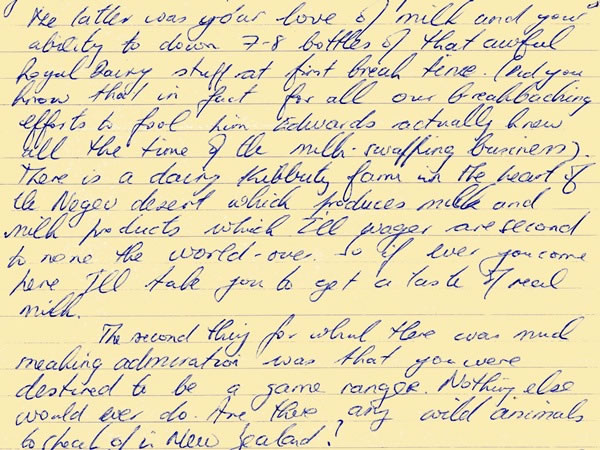 The latter was your love of milk and your
ability to down 7-8 bottles of that awful
Royal Dairy stuff at first break time. (Did you
know that in fact for all our breakbaching
efforts to fool him Edwards actually knew
all the time of the milk-swapping business).
There is a dairy Kibbutz farm in the heart of
the Negev desert which produces milk and
milk products which I'll wager are second
to none the world-over. So if ever you come
here I'll take you to get a taste of real
milk.
The second thing for which there was much
sneaking admiration was that you were
destined to be a game ranger. Nothing else
would ever do. Are there any wild animals
to speak of in New Zealand?